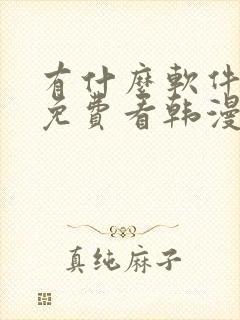 有什麼軟件
免費看韩漫
真纯麻子